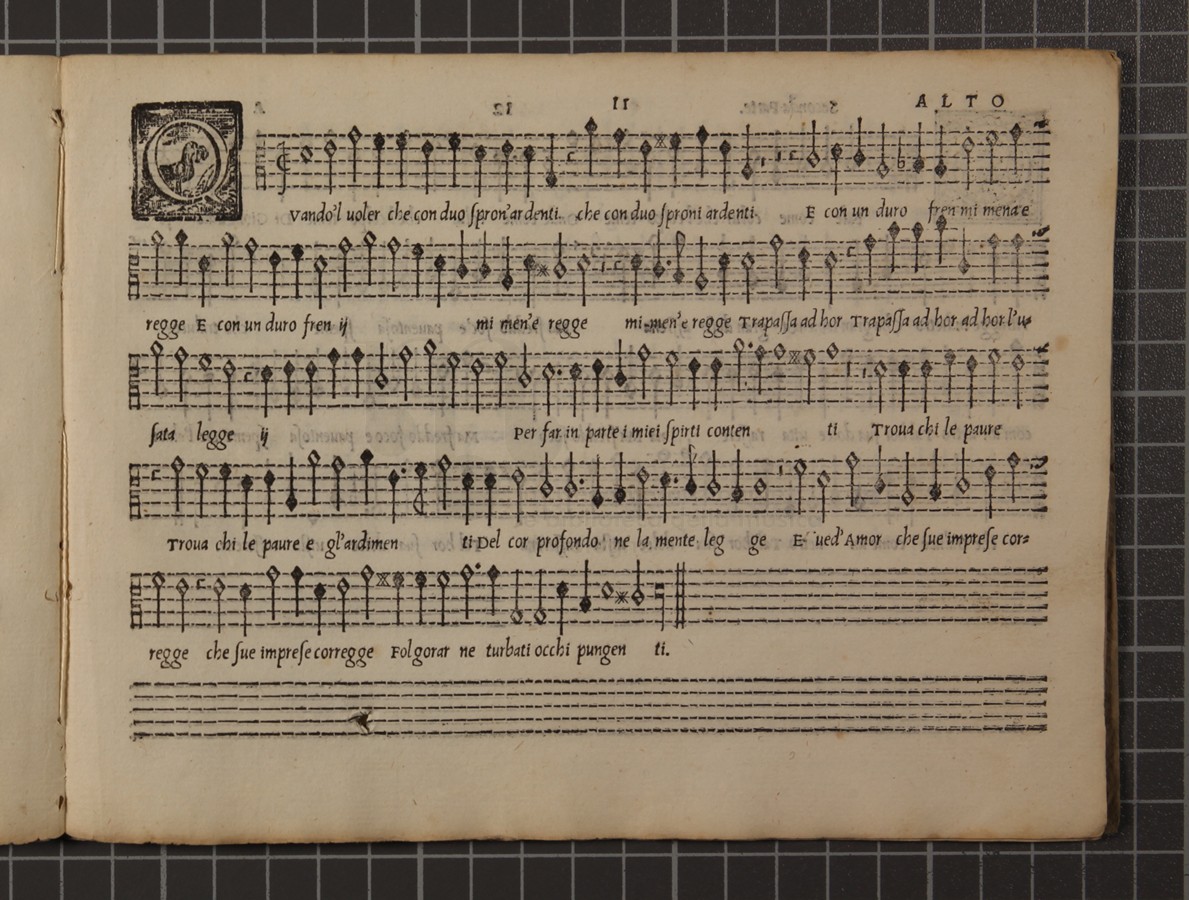 11 ALTO
QVando'l uoler che con duo ſpron'ardenti che con duo ſproni ardenti E con un duro fren mi mena e
regge E con un duro fren ij mi men'e regge mi men'e regge Trapaſſa ad hor Trapaſſa ad hor ad hor l'u-
ſata legge ij Per far in parte i miei ſpirti conten ti Troua chi le paure
Troua chi le paure e gl'ardimen ti Del cor profondo ne la mente leg ge E ued'Amor che ſue impreſe cor=
regge che ſue impreſe corregge Folgorar ne turbati occhi pungen ti.